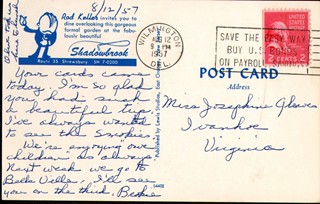 8/12/57
Rod Keller invites you to
dine overlooking this gorgeous
formal garden at the fabu-
lously beautiful
Shadowbrook
Route 35, Shrewsbury SH 7-0200
WILMINGTON
AUG 12
9 PM
1957
DEL.
SAVE THE EASY WAY
BUY U.S. BONDS
ON PAYROLL SAVINGS
2 CENTS 2
POST CARD
Address
Your cards came
today. I'm so glad
you had such
a beautiful trip.
I've always wanted
to see the Smokies.
We're enjoying our
children as always
Next week we go to
Bella Villa. I'll see
you on the third.
Miss Josephine Glover
Ivanhoe
Virginia